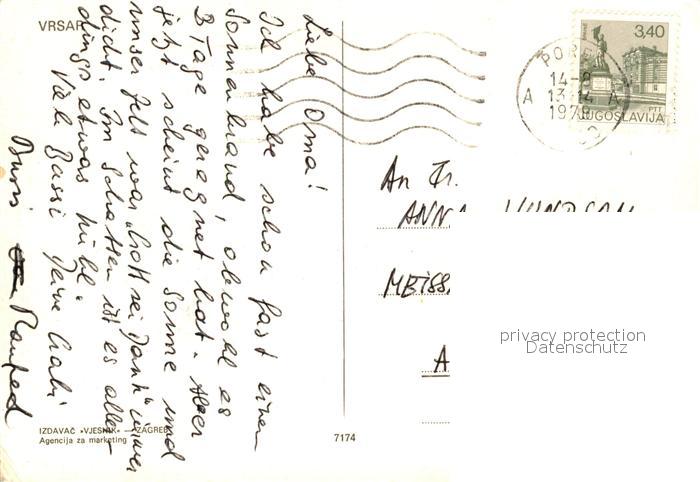 VRSAR
Liebe Oma!
Ich habe schon fast einen
Sonnenbrand, obwohl es
3 Tage geregnet hat. Aber
jetzt scheint die Sonne und
unser Zelt war "Gott sei Dank" immer
dicht. Im Schatten ist es aller-
dings etwas kühl.
Viele Bussi Deine Gabi
Bussi Manfred
IZDAVAČ »VJESNIK« — ZAGREB
Agencija za marketing
7174
3,40
PTT
JUGOSLAVIJA
14-8
A 13-14 A
197
An Fr.
ANNA
MEISS
A
privacy protection
Datenschutz